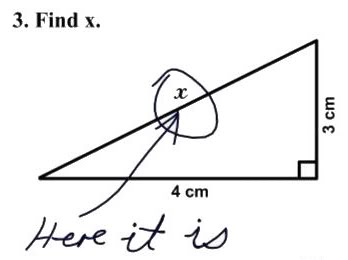 3. Find x.
x
3 cm
4 cm
Here it is